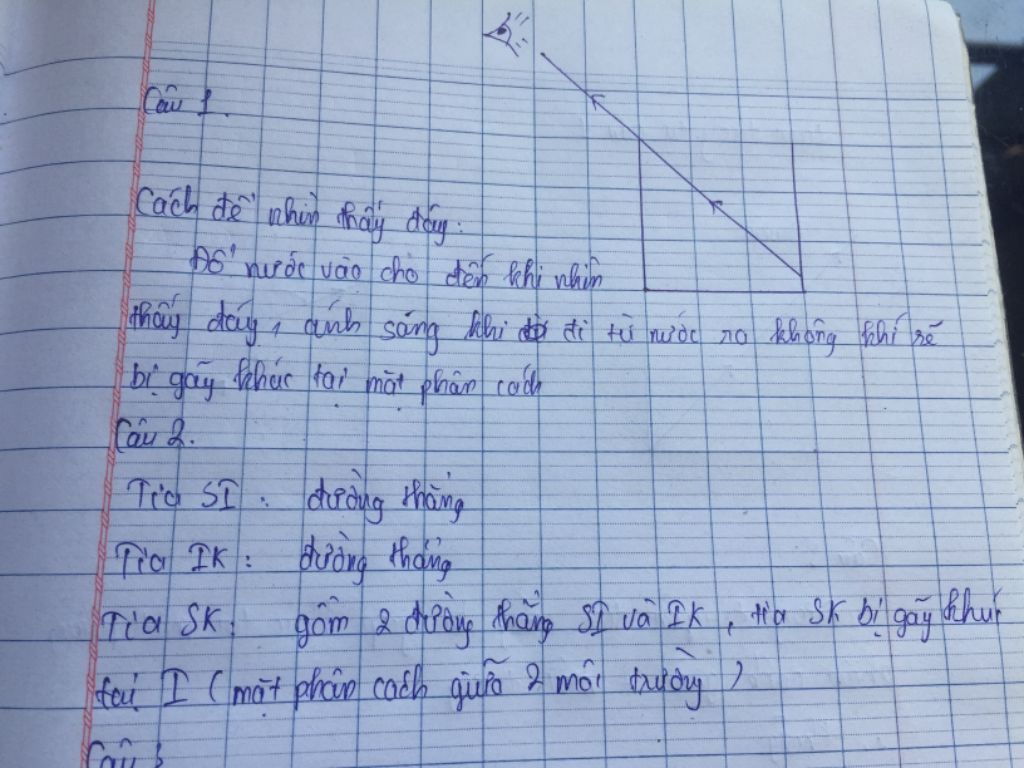 Câu 1.
Cách để nhìn thấy đáy:
Đổ nước vào cho đến khi nhìn
thấy đáy, ánh sáng khi đi từ nước ra không khí sẽ
bị gãy khúc tại mặt phân cách
Câu 2.
Tia SI : đường thẳng
Tia IK : đường thẳng
Tia SK : gồm 2 đường thẳng SI và IK, tia SK bị gãy khúc
tại I (mặt phân cách giữa 2 môi trường)
Câu 3